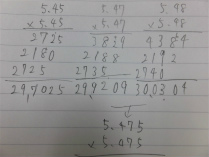 5.45 5.47 5.48
x 5.45 x 5.47 x 5.48
2725 3829 4384
2180 2188 2192
2725 2735 2740
29,7025 299209 30,0304
5.475
x 5.475